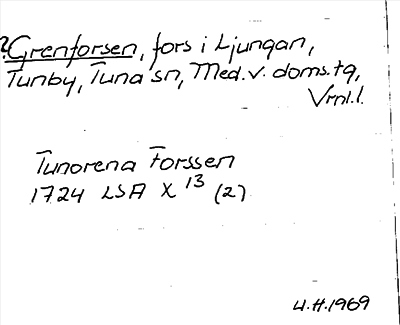 ?Grenforsen, fors i Ljungan,
Tunby, Tuna sn, Med. v. doms. tg,
Vrnl. l.
Tunorena Forssen
1724 LSA X 13 (2)
U.H. 1969